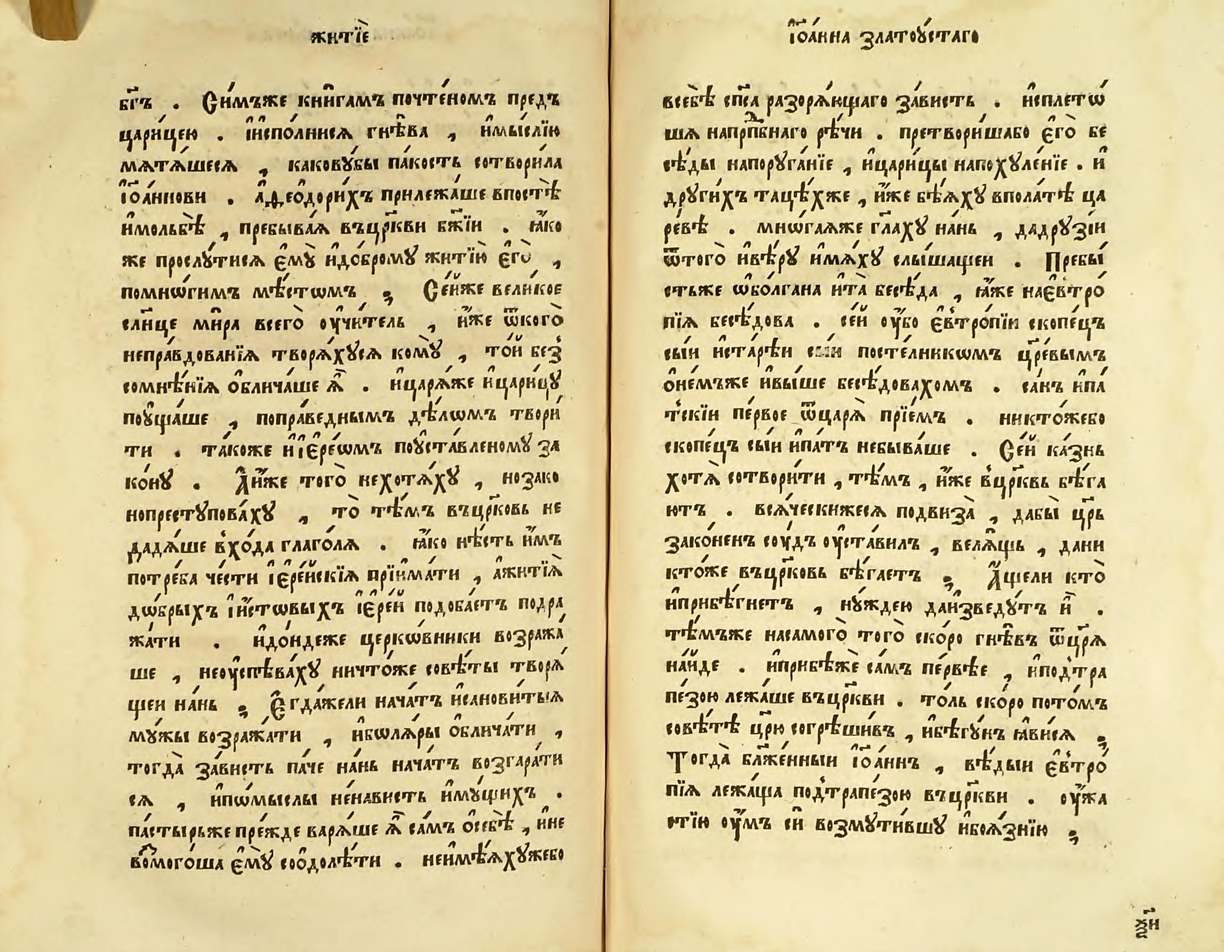 житїѐ
бг҃ъ . Си́мъже кни́гамъ почте́номъ пред̾
цари́цею . и҆и҆спо́лнисѧ гнѣ́ва , и҆мы́слїю
мѧтѧ́шесѧ , какову́бы па́кость сотвори́ла
і҆ѡа́ннови . а҆ѳео́дорихъ прилежа́ше впостѣ̀
и҆мольбѣ̀ , пребыва́ѧ въцр҃кви бж҃їи . ꙗ҆́ко
же прослути́сѧ є҆мꙋ̀ и҆до́бромꙋ житїю̀ є҆го̀ ,
помно́гимъ мѣ́стѡмъ ; Се́йже вели́кое
сл҃нце ми́ра всего̀ ᲂу҆чи́тель , и҆́же ѿкого̀
непра́вдованїѧ творѧ́хусѧ комꙋ̀ , то́й без̾
сомнѣ́нїѧ ѡ҆блича́ше ѧ҆̀ . и҆царѧ́же и҆цари́цꙋ
поꙋща́ше , попра́веднымъ дѣ́лѡмъ твори́
ти . та́коже и҆і҆ере́ѡмъ поꙋста́вленомꙋ за
ко́нꙋ . А҆́иже того̀ нехотѧ́хꙋ , но́зако
нопрестꙋпова́хꙋ , то̀ тѣ́мъ въцр҃ковь не
дадѧ́ше вхо́да глаго́лѧ . ꙗ҆́ко нѣ́сть и҆́мъ
потре́ба че́сти і҆ере́йскїѧ прїима́ти , а҆житїѧ̀
до́брыхъ і҆и҆́стовыхъ і҆ере́й подоба́етъ подра
жа́ти . и҆до́ндеже церко́вники возража́
ше , неᲂу҆спѣва́хꙋ ничто́же совѣ́ты творѧ́
щеи на́нь ; Е҆гда́жели нача́тъ и҆санови́тыѧ
мꙋ́жы возража́ти , и҆болѧ́ры ѡ҆блича́ти ,
тогда̀ за́висть па́че на́нь нача́тъ возгара́ти
сѧ , и҆по́мыслы не́нависть и҆мꙋ́щихъ .
па́стырьже пре́жде варѧ́ше ѧ҆̀ са́мъ ѡ҆себѣ̀ , и҆не
возмого́ша є҆мꙋ̀ соѡдолѣ́ти . неи҆мѣ́ѧхꙋжебо
І҆ѡа́нна златоꙋ́стаго
всебѣ̀ сп҃са разорѧ́ющаго за́висть . и҆сплето́
шѧ напрпⷣбнаго рѣ́чи . претвори́шабо є҆го̀ бе
сѣ́ды напорꙋга́нїе , и҆цари́цы напохꙋле́нїе . и҆
дрꙋги́хъ тацѣ́хже , и҆́же бѣ́ѧхꙋ вполатѣ̀ ца
ре́вѣ . мно́гаѧже гл҃ахꙋ на́нь , дадрꙋзі́и
ѿтого̀ и҆вѣ́рꙋ и҆мѧ́хꙋ слы́шащеи . Пребы́
стьже ѡ҆болгана и҆та̀ бесѣ́да , ꙗ҆́же наєвтро́
пїѧ бесѣ́дова . се́й ᲂу҆́бо є҆ѵтро́пїи скопе́цъ
сы́и и҆старѣ́и сы́и посте́лникомъ цр҃е́вымъ
ѡ҆не́мъже и҆вы́ше бесѣ́довахомъ . са́нъ и҆па́
тскїи пе́рвое ѿцарѧ̀ прїе́мъ . никто́жебо
скопе́цъ сы́и и҆па́тъ небыва́ше . Се́й ка́знь
хотѧ̀ сотвори́ти , тѣ́мъ , и҆́же в҆цр҃квь бѣ́га
ютъ . всѧ́ческижесѧ подвиза̀ , дабы̀ цр҃ь
зако́ненъ сꙋ́дъ ᲂу҆ста́вилъ , велѧ́щь , дани
кто́же въцр҃ковь бѣ́гаетъ ; А҆́щели кто̀
и҆прибѣ́гнетъ , нꙋ́ждею даи҆зведꙋ́тъ и҆̀ .
тѣ́мъже насамого̀ того̀ ско́ро гнѣ́въ ѿцр҃ѧ
на́иде . и҆прибѣжѐ са́мъ пе́рвѣе , и҆под̾тра
пе́зою лежа́ше въцр҃кви . то́ль ско́ро пото́мъ
совѣ́тѣ цр҃ю согрѣши́въ , и҆бѣгꙋ́нъ ꙗ҆ви́сѧ ;
Тогда̀ бл҃же́нныи і҆ѡа́ннъ , вѣ́дыи є҆ѵтро́
пїѧ лежа́ща под̾трапе́зою въцр҃кви . ᲂу҆жа
стїю ᲂу҆́мъ си́ возмꙋти́вшꙋ и҆боѧ́знїю ;